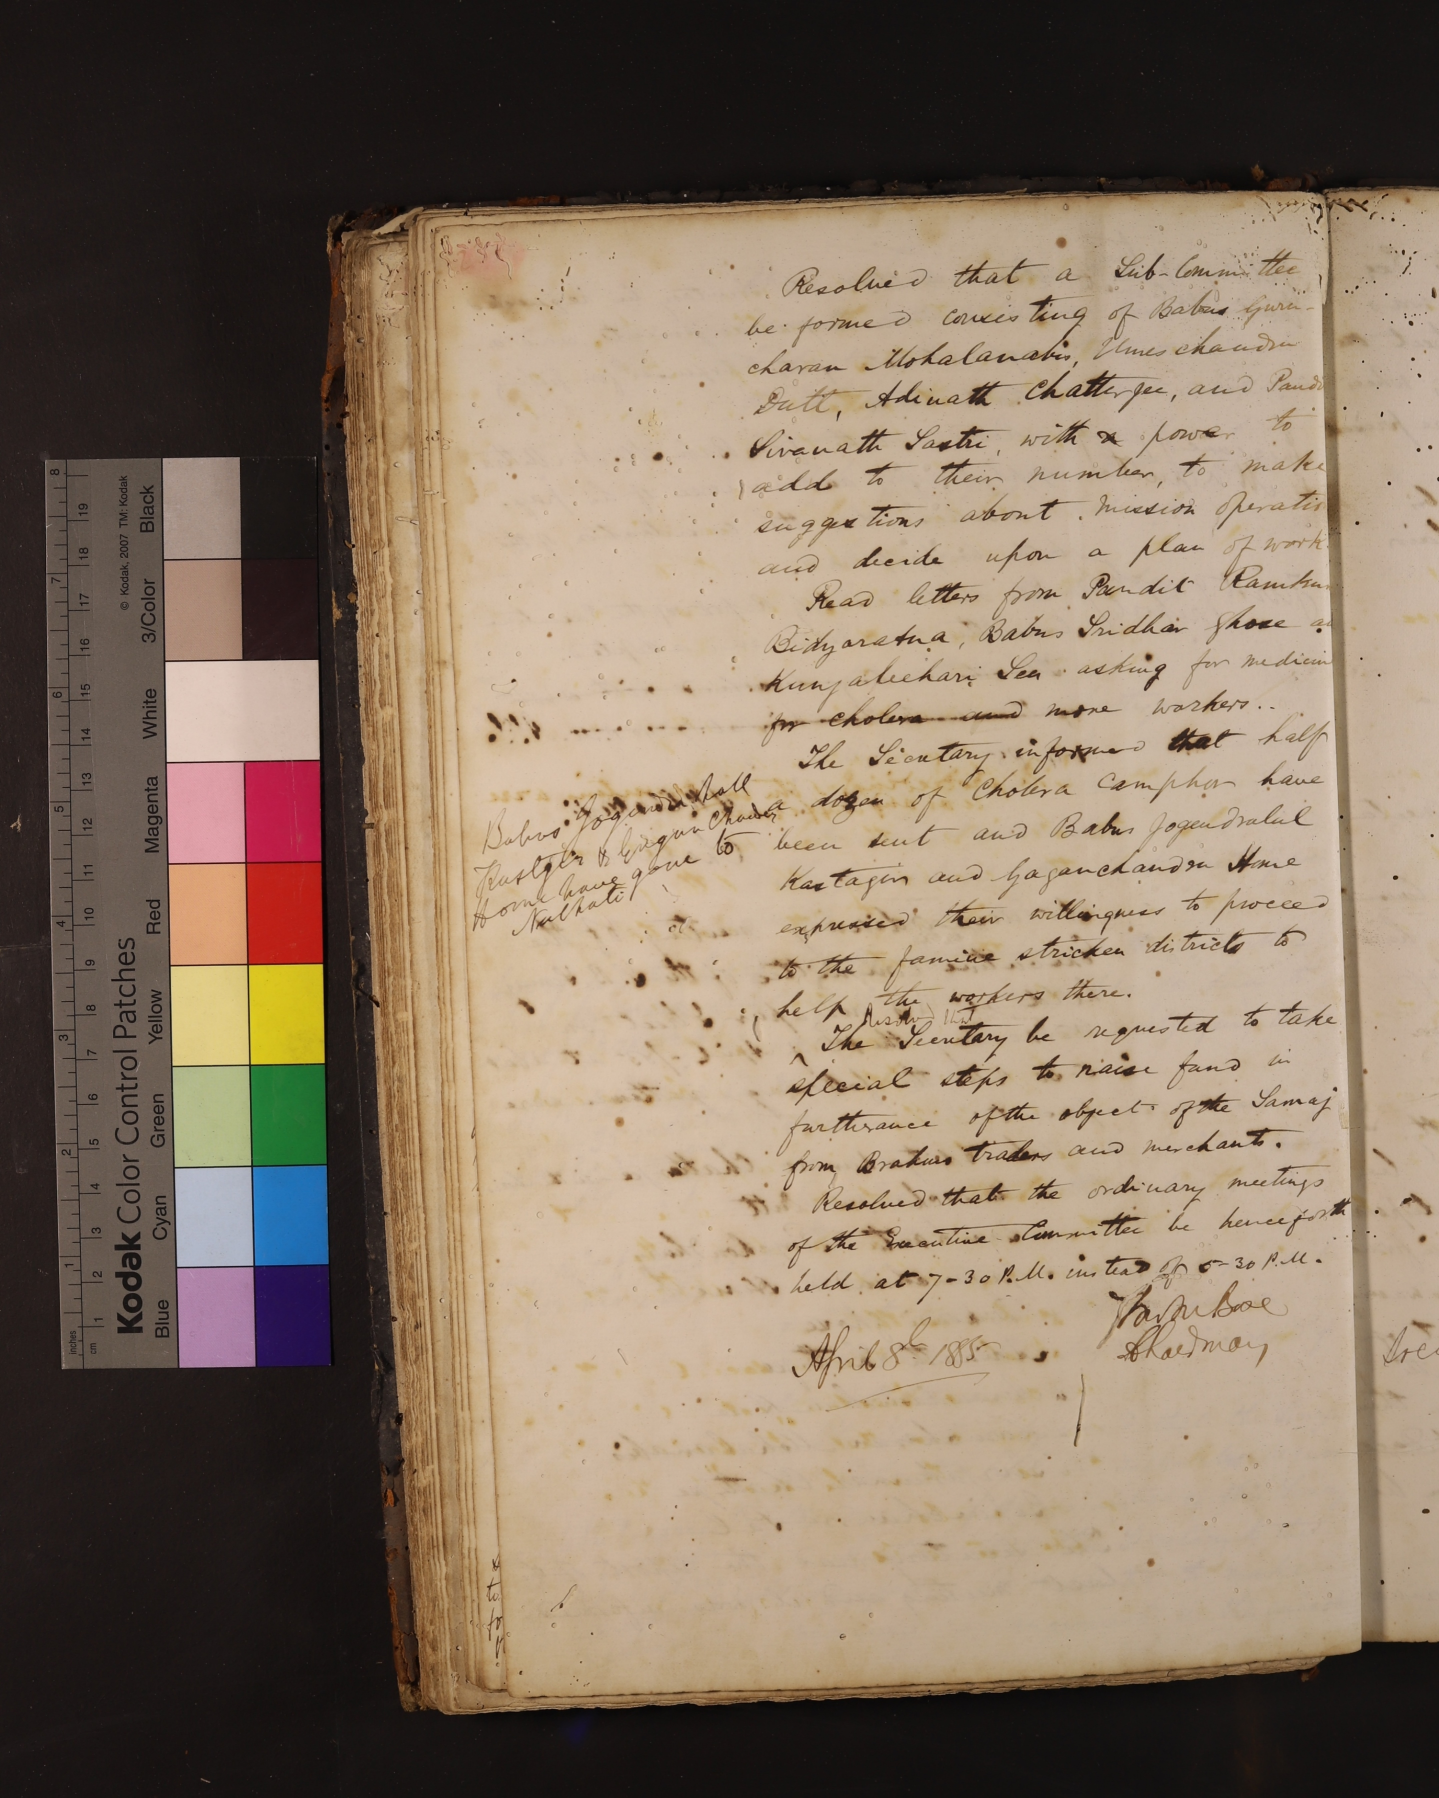 Resolved that a Sub-Committee
be formed consisting of Babus Guru-
charan Mohalanabis, Umeschandra
Dutt, Adinath Chatterjee, and Pandi
Sivanath Sastri, with power to
add to their number, to make
suggestions about mission operatio
and decide upon a plan of work.
Read letters from Pandit Ramkum
Bidyaratna, Babus Sridhar Ghose a
Kunjabehari Sen asking for medicin
for cholera and more workers..
The Secretary informed that half
a dozen of Cholera Camphor have
been sent and Babus Jogendralal
Kastagir and Gaganchandra Home
expressed their willingness to proceed
to the famine stricken districts to
help the workers there.
Resolved that
The Secretary be requested to take
special steps to raise fund in
furtherance of the object of the Samaj
from Brahmo traders and merchants.
Resolved that the ordinary meetings
of the Executive Committee be henceforth
held at 7-30 P.M. instead of 5-30 P.M.
Bose
April 8th 1885
Chairman
Babus Jogendra Lall
Kastgir & Gagan Chandra
Home have gone to
Nalhati
Kodak Color Control Patches
© Kodak, 2007 TM: Kodak
Blue Cyan Green Yellow Red Magenta White 3/Color Black
inches 1 2 3 4 5 6 7 8
cm 1 2 3 4 5 6 7 8 9 10 11 12 13 14 15 16 17 18 19